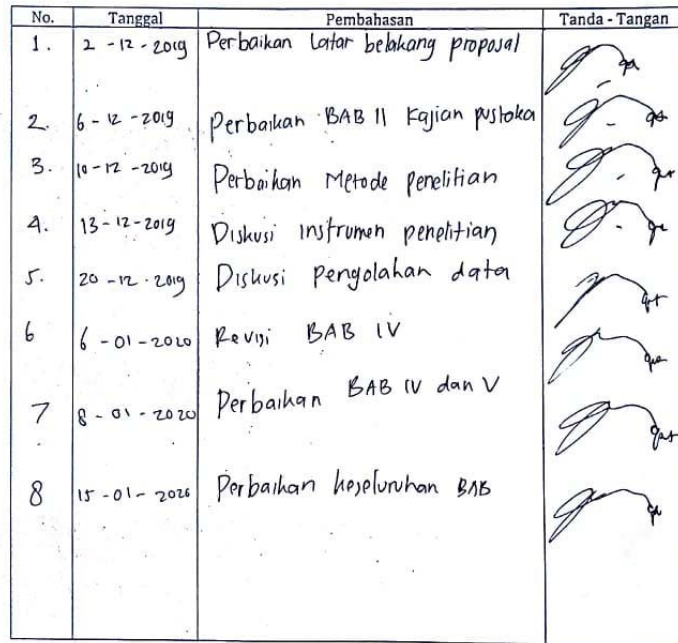 No. Tanggal Pembahasan Tanda - Tangan
1. 2 - 12 - 2019 Perbaikan Latar belakang proposal
2. 6 - 12 - 2019 Perbaikan BAB II Kajian pustaka
3. 10 - 12 - 2019 Perbaikan Metode penelitian
4. 13 - 12 - 2019 Diskusi instrumen penelitian
5. 20 - 12 - 2019 Diskusi pengolahan data
6 6 - 01 - 2020 Revisi BAB IV
7 8 - 01 - 2020 Perbaikan BAB IV dan V
8 15 - 01 - 2020 Perbaikan keseluruhan BAB